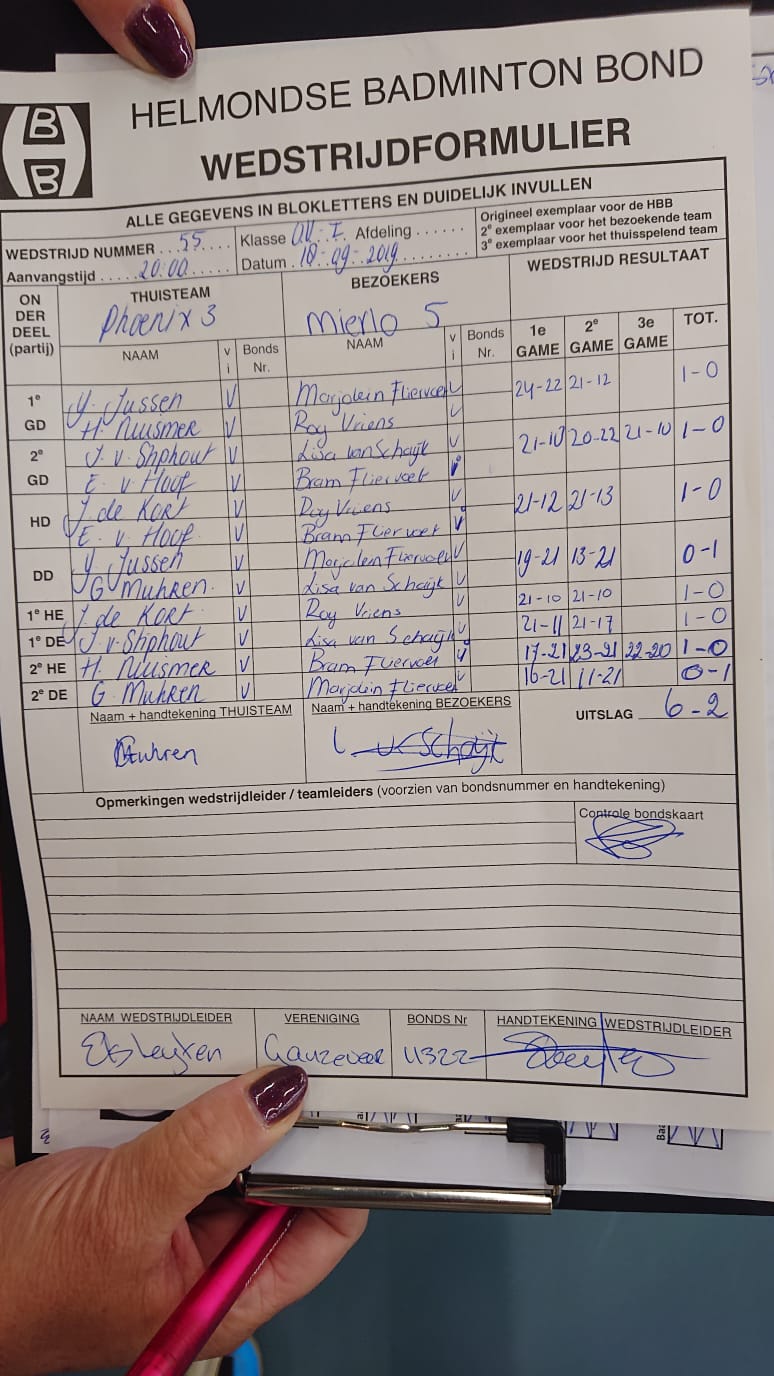 HELMONDSE BADMINTON BOND
WEDSTRIJDFORMULIER
ALLE GEGEVENS IN BLOKLETTERS EN DUIDELIJK INVULLEN
WEDSTRIJD NUMMER 55 Klasse OV. I Afdeling
Aanvangstijd 20:00 Datum 10-09-2019
Origineel exemplaar voor de HBB
2e exemplaar voor het bezoekende team
3e exemplaar voor het thuisspelend team
ON DER DEEL (partij)
THUISTEAM BEZOEKERS WEDSTRIJD RESULTAAT
Phoenix 3 Mierlo 5
NAAM v i Bonds Nr. NAAM v i Bonds Nr. 1e GAME 2e GAME 3e GAME TOT.
1e GD Y. Jussen V Marjolein Fliervoet V 24-22 21-12 1-0
H. Nuismer V Roy Vriens V
2e GD J. v. Stiphout V Lisa van Schaijk V 21-10 20-22 21-10 1-0
E. v Hoof V Bram Fliervoet V
HD J de Kort V Roy Vriens V 21-12 21-13 1-0
E. v. Hoof V Bram Fliervoet V
DD Y Jussen V Marjolein Fliervoet V 19-21 13-21 0-1
G Muhren. V Lisa van Schaijk V
1e HE J. de Kort V Roy Vriens V 21-10 21-10 1-0
1e DE J. v. Stiphout V Lisa van Schaijk V 21-11 21-17 1-0
2e HE H. Nuismer V Bram Fliervoet V 17-21 23-21 22-20 1-0
2e DE G. Muhren V Marjolein Fliervoet 16-21 11-21 0-1
Naam + handtekening THUISTEAM Naam + handtekening BEZOEKERS UITSLAG 6-2
GMuhren L v Schaijk
Opmerkingen wedstrijdleider / teamleiders (voorzien van bondsnummer en handtekening)
Controle bondskaart
NAAM WEDSTRIJDLEIDER VERENIGING BONDS Nr HANDTEKENING WEDSTRIJDLEIDER
Ganzeveer